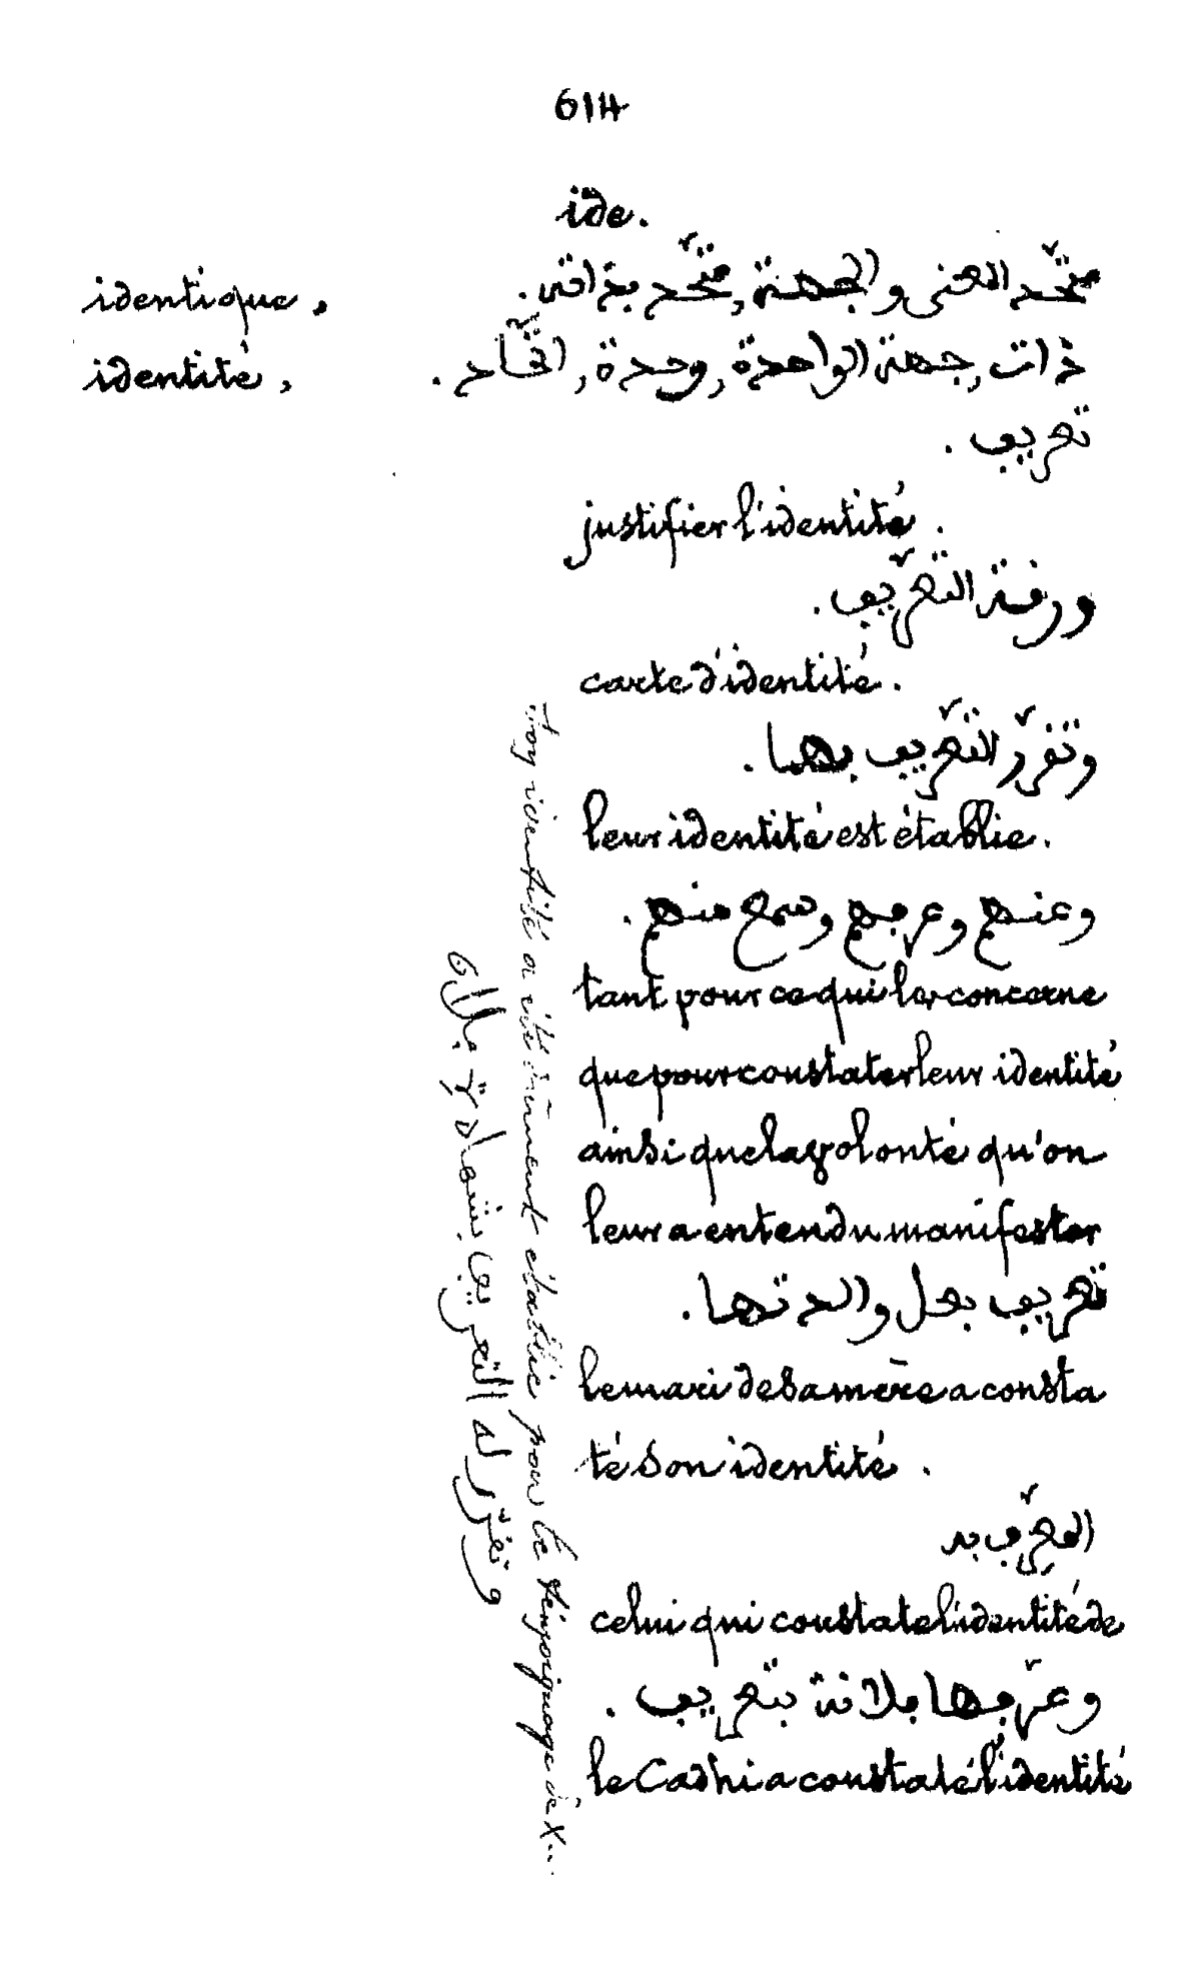 614
ide.
identique, متّحد المعنى والجهة, متّحد بذاته.
identité, ذات, جهة الواحدة, وحدة, اتّحاد.
تعريف.
justifier l'identité.
ورقة التعرّيف.
carte d'identité.
وتقرّر التعرّيف بهما.
leur identité est établie.
وعنهم وعرفهم وسمع منهم.
tant pour ce qui les concerne
que pour constater leur identité
ainsi que la volonté qu'on
leur a entendu manifester
تعريف بعل والدتها.
le mari de sa mère a consta
té son identité.
المعرّف به
celui qui constate l'identité de
وعرّفها فلانة بتعريف.
le Cadhi a constaté l'identité
وتقرّر له التعريف بشهادة
identité a été dûment établie pour le témoignage de X...